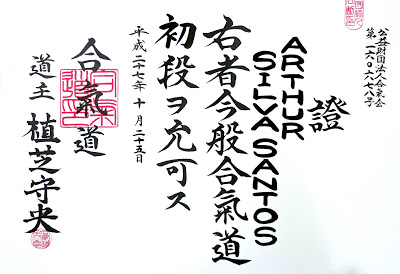 公益財団法人合気会
第一六〇六七八号
證
ARTHUR
SILVA SANTOS
右者今般合氣道
初段ヲ允可ス
平成二十七年十月二十五日
合氣道
道主 植芝守央